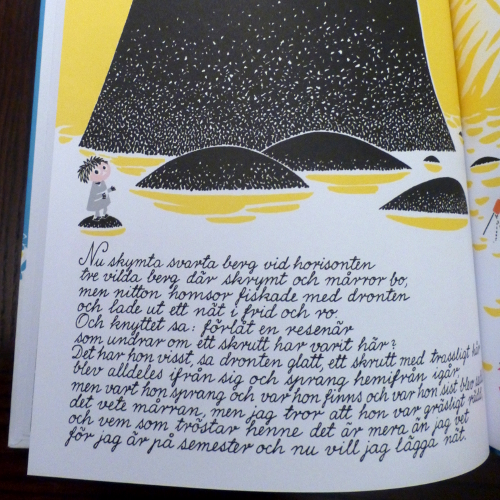 Nu skymta svarta berg vid horisonten
tre vilda berg där skrymt och mårror bo,
men nitton homsor fiskade med dronten
och lade ut ett nät i frid och ro.
Och knyttet sa: förlåt en resenär
som undrar om ett skrutt har varit här?
Det har hon visst, sa dronten glatt, ett skrutt med trassligt hår
blev alldeles ifrån sig och sprang hemifrån igår,
men vart hon sprang och var hon finns och var hon sist blev
det vete mårran, men jag tror att hon var gräsligt rädd,
och vem som tröstar henne det är mera än jag vet
för jag är på semester och nu vill jag lägga nät.